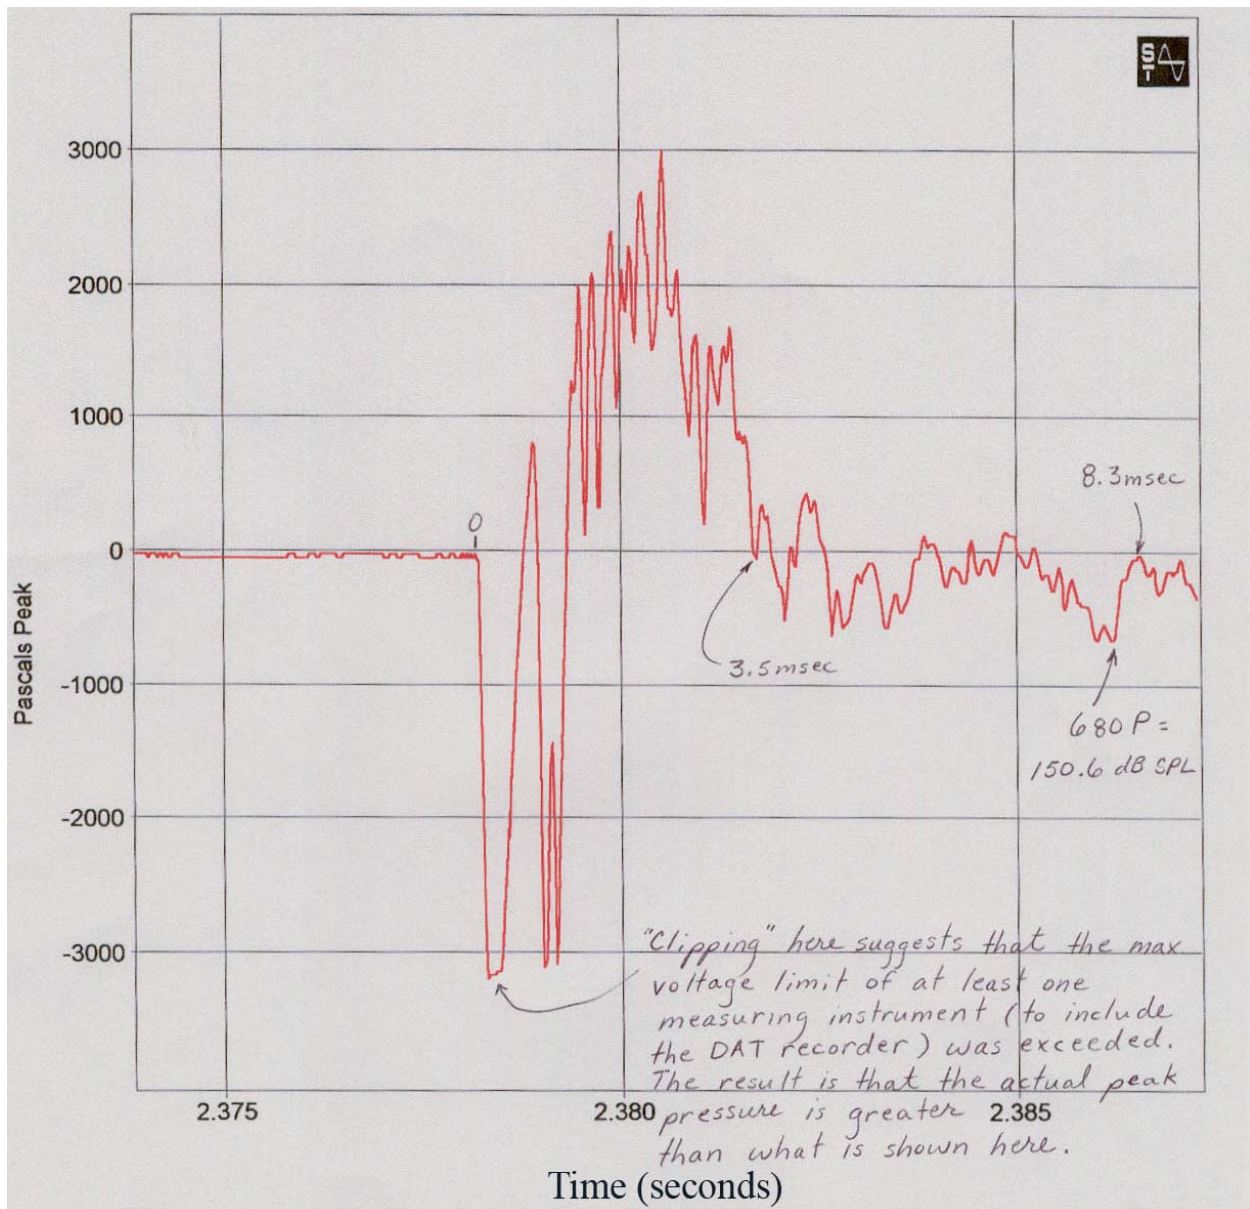 SI
3000
2000
1000
0
0
-1000
-2000
-3000
Pascals Peak
8.3msec
3.5msec
680 P =
150.6 dB SPL
"Clipping" here suggests that the max
voltage limit of at least one
measuring instrument (to include
the DAT recorder) was exceeded.
The result is that the actual peak
pressure is greater
than what is shown here.
2.375
2.380
2.385
Time (seconds)